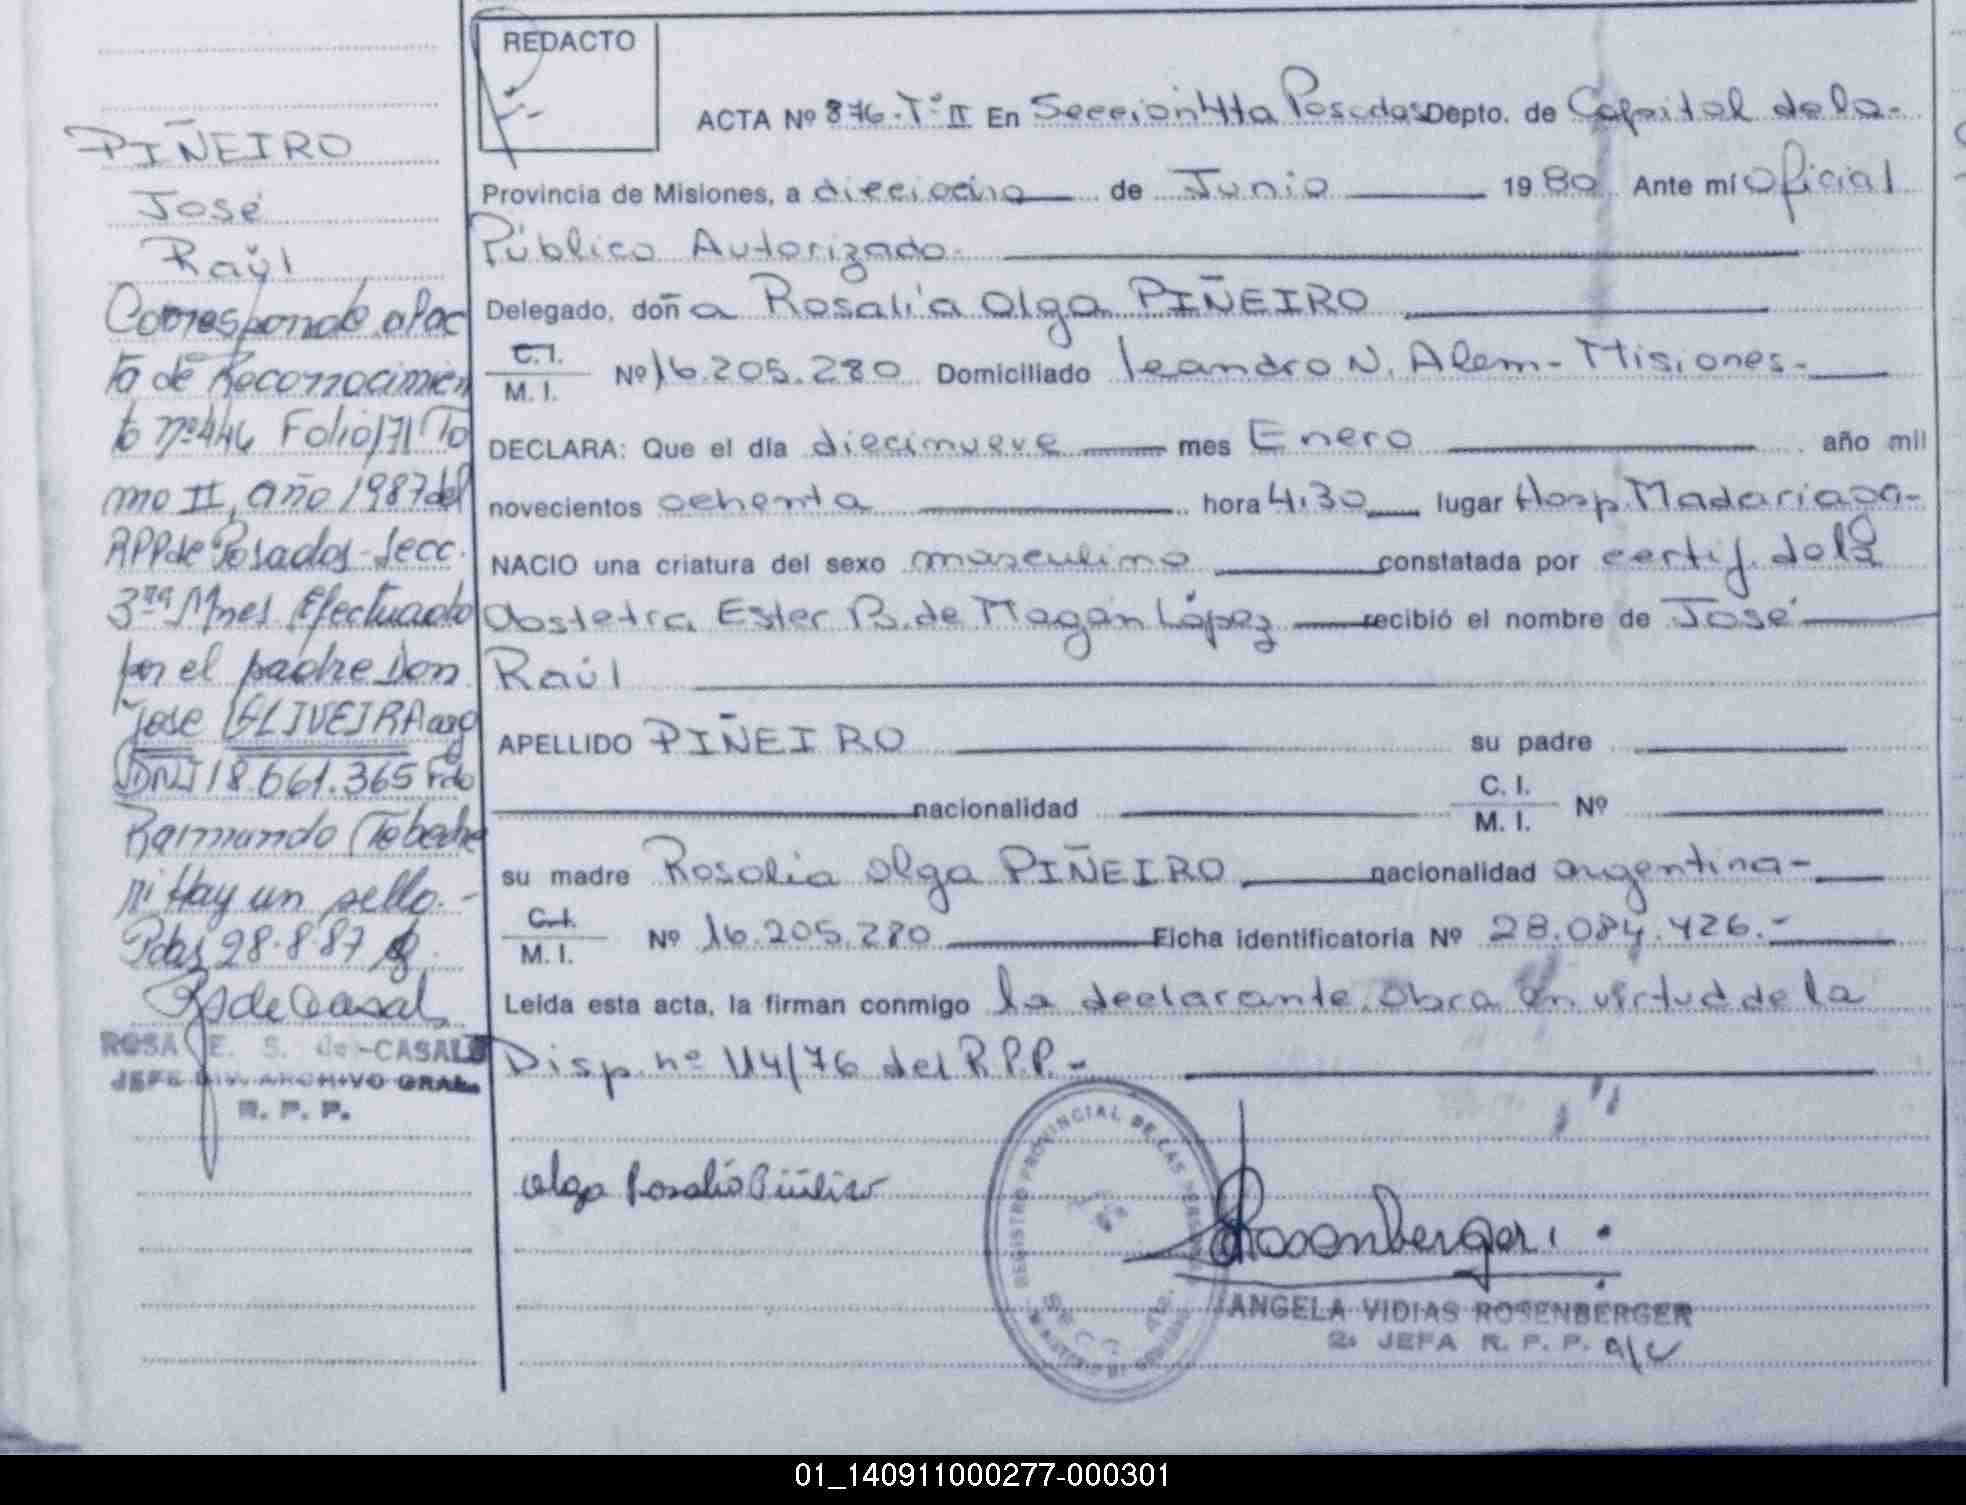 REDACTO
ACTA Nº 876-Tº II En Sección 4ta Posadas Depto. de Capital de la-
Provincia de Misiones, a dieciocho de Junio 1980 Ante mí Oficial
Público Autorizado-
Delegado, doña Rosalía Olga PIÑEIRO
C.I. / M. I. Nº 16.205.280 Domiciliado Leandro N. Alem- Misiones-
DECLARA: Que el día diecinueve mes Enero año mil
novecientos ochenta hora 4:30 lugar Hosp. Madariaga-
NACIO una criatura del sexo masculino constatada por certif. de la
Obstetra Ester B. de Magán López recibió el nombre de José
Raúl
APELLIDO PIÑEIRO su padre
nacionalidad C. I. / M. I. Nº
su madre Rosalía Olga PIÑEIRO nacionalidad argentina-
C.I. / M. I. Nº 16.205.280 Ficha identificatoria Nº 28.084.426.-
Leída esta acta, la firman conmigo la declarante. Obra en virtud de la
Disp. nº 114/76 del R.P.P.-
Olga Rosalía Piñeiro
REGISTRO PROVINCIAL DE LAS PERSONAS
SECC. 4ta.
Rosenberger
ANGELA VIDIAS ROSENBERGER
2ª JEFA R. P. P. a/c
PIÑEIRO
José
Raúl
Corresponde al ac
ta de Reconocimien
to nº 446 Folio 171 To
mo II, año 1987 del
RPP de Posadas-Secc.
3ra Mnes. Efectuado
por el padre Don
José OLIVEIRA arg
DNI 18.661.365 Fdo
Raimundo
Hay un sello.-
Pdas 28-8-87
RS de Casal
ROSA E. S. de CASALS
JEFE DIV. ARCHIVO GRAL.
R. P. P.
01_140911000277-000301